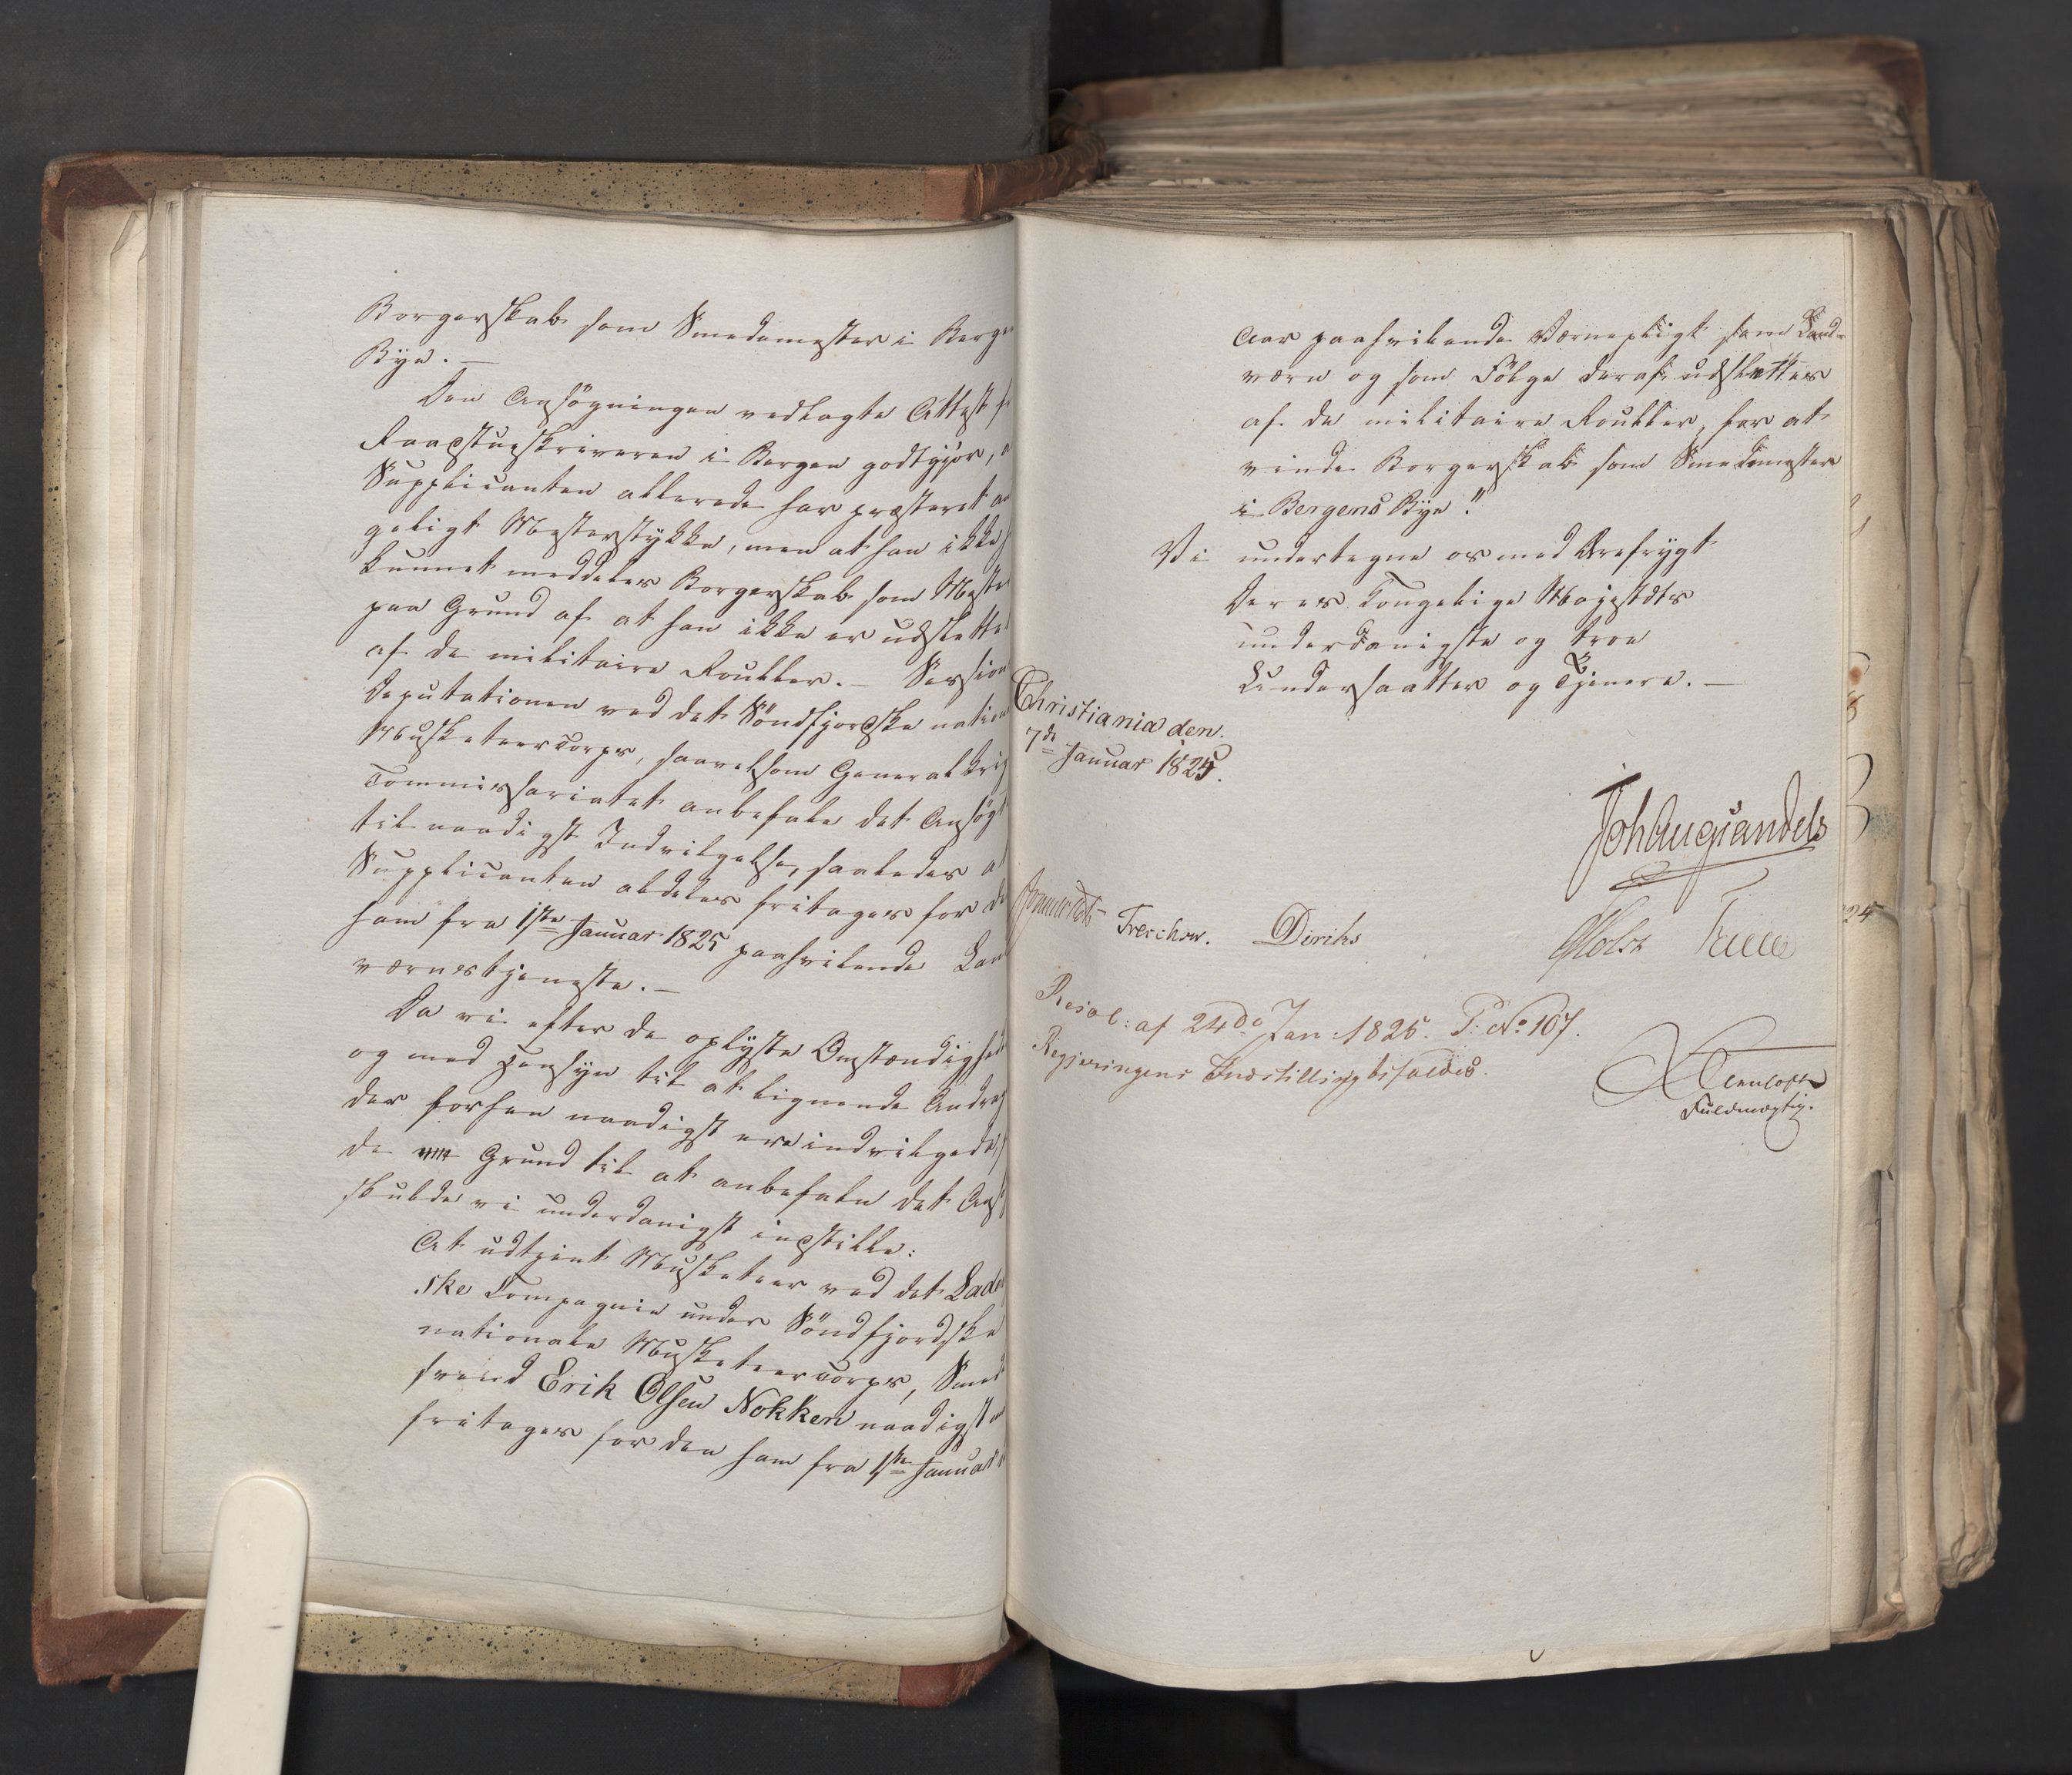 Borgerskab som Smedemester i Berge
Bye. —
Den Ansögningen vedlagte Attest f
Raadstueskriveren i Bergen godtgjör, a
Supplicanten allerede har præsteret an
geligt Mesterstykke, men at han ikke
kunnet meddeles Borgerskab som Meste
paa Grund af at han ikke er udslettet
af de militaire Roubler. — Session
Deputationen ved det Söndfjordske nation
Musketeercorps, saavelsom General Krig
Commissariatet anbefale det Ansögt
til naadigst Indvilgelse, saaledes a
Supplicanten aldeles fritages for de
ham fra 1ste Januar 1825 paahvilende Lan
værnstjeneste. —
Da vi efter de oplyste Omstændighed
og med Hensyn til at lignende Andrag
der forhen naadigst ere indvilgede,
de Grund til at anbefale det Ans
skulde vi underdanigst indstille:
At udtjent Musketeer ved det Lade
ske Compagnie under Söndfjordske
nationale Musketeercorps, Smed
svend Erik Olsen Nokken naadigst
fritages for den ham fra 1ste Januar
Aar paahvilende Værnepligt som Land-
værn og som Fölge deraf udslettes
af de militaire Roubler, for at
vinde Borgerskab som Smedemester
i Bergens Bye."
Vi undertegne os med Ærefrygt
Deres Kongelige Majestæts
underdanigste og troe
Undersaatter og Tjenere. —
Christiania den
7de Januar 1825.
Joh Aug Sandels
Treschow. Diriks
Holst
Resol: af 24de Jan: 1825. P: No 107.
Regjeringens Indstilling bifaldes.
Fuldmægtig.